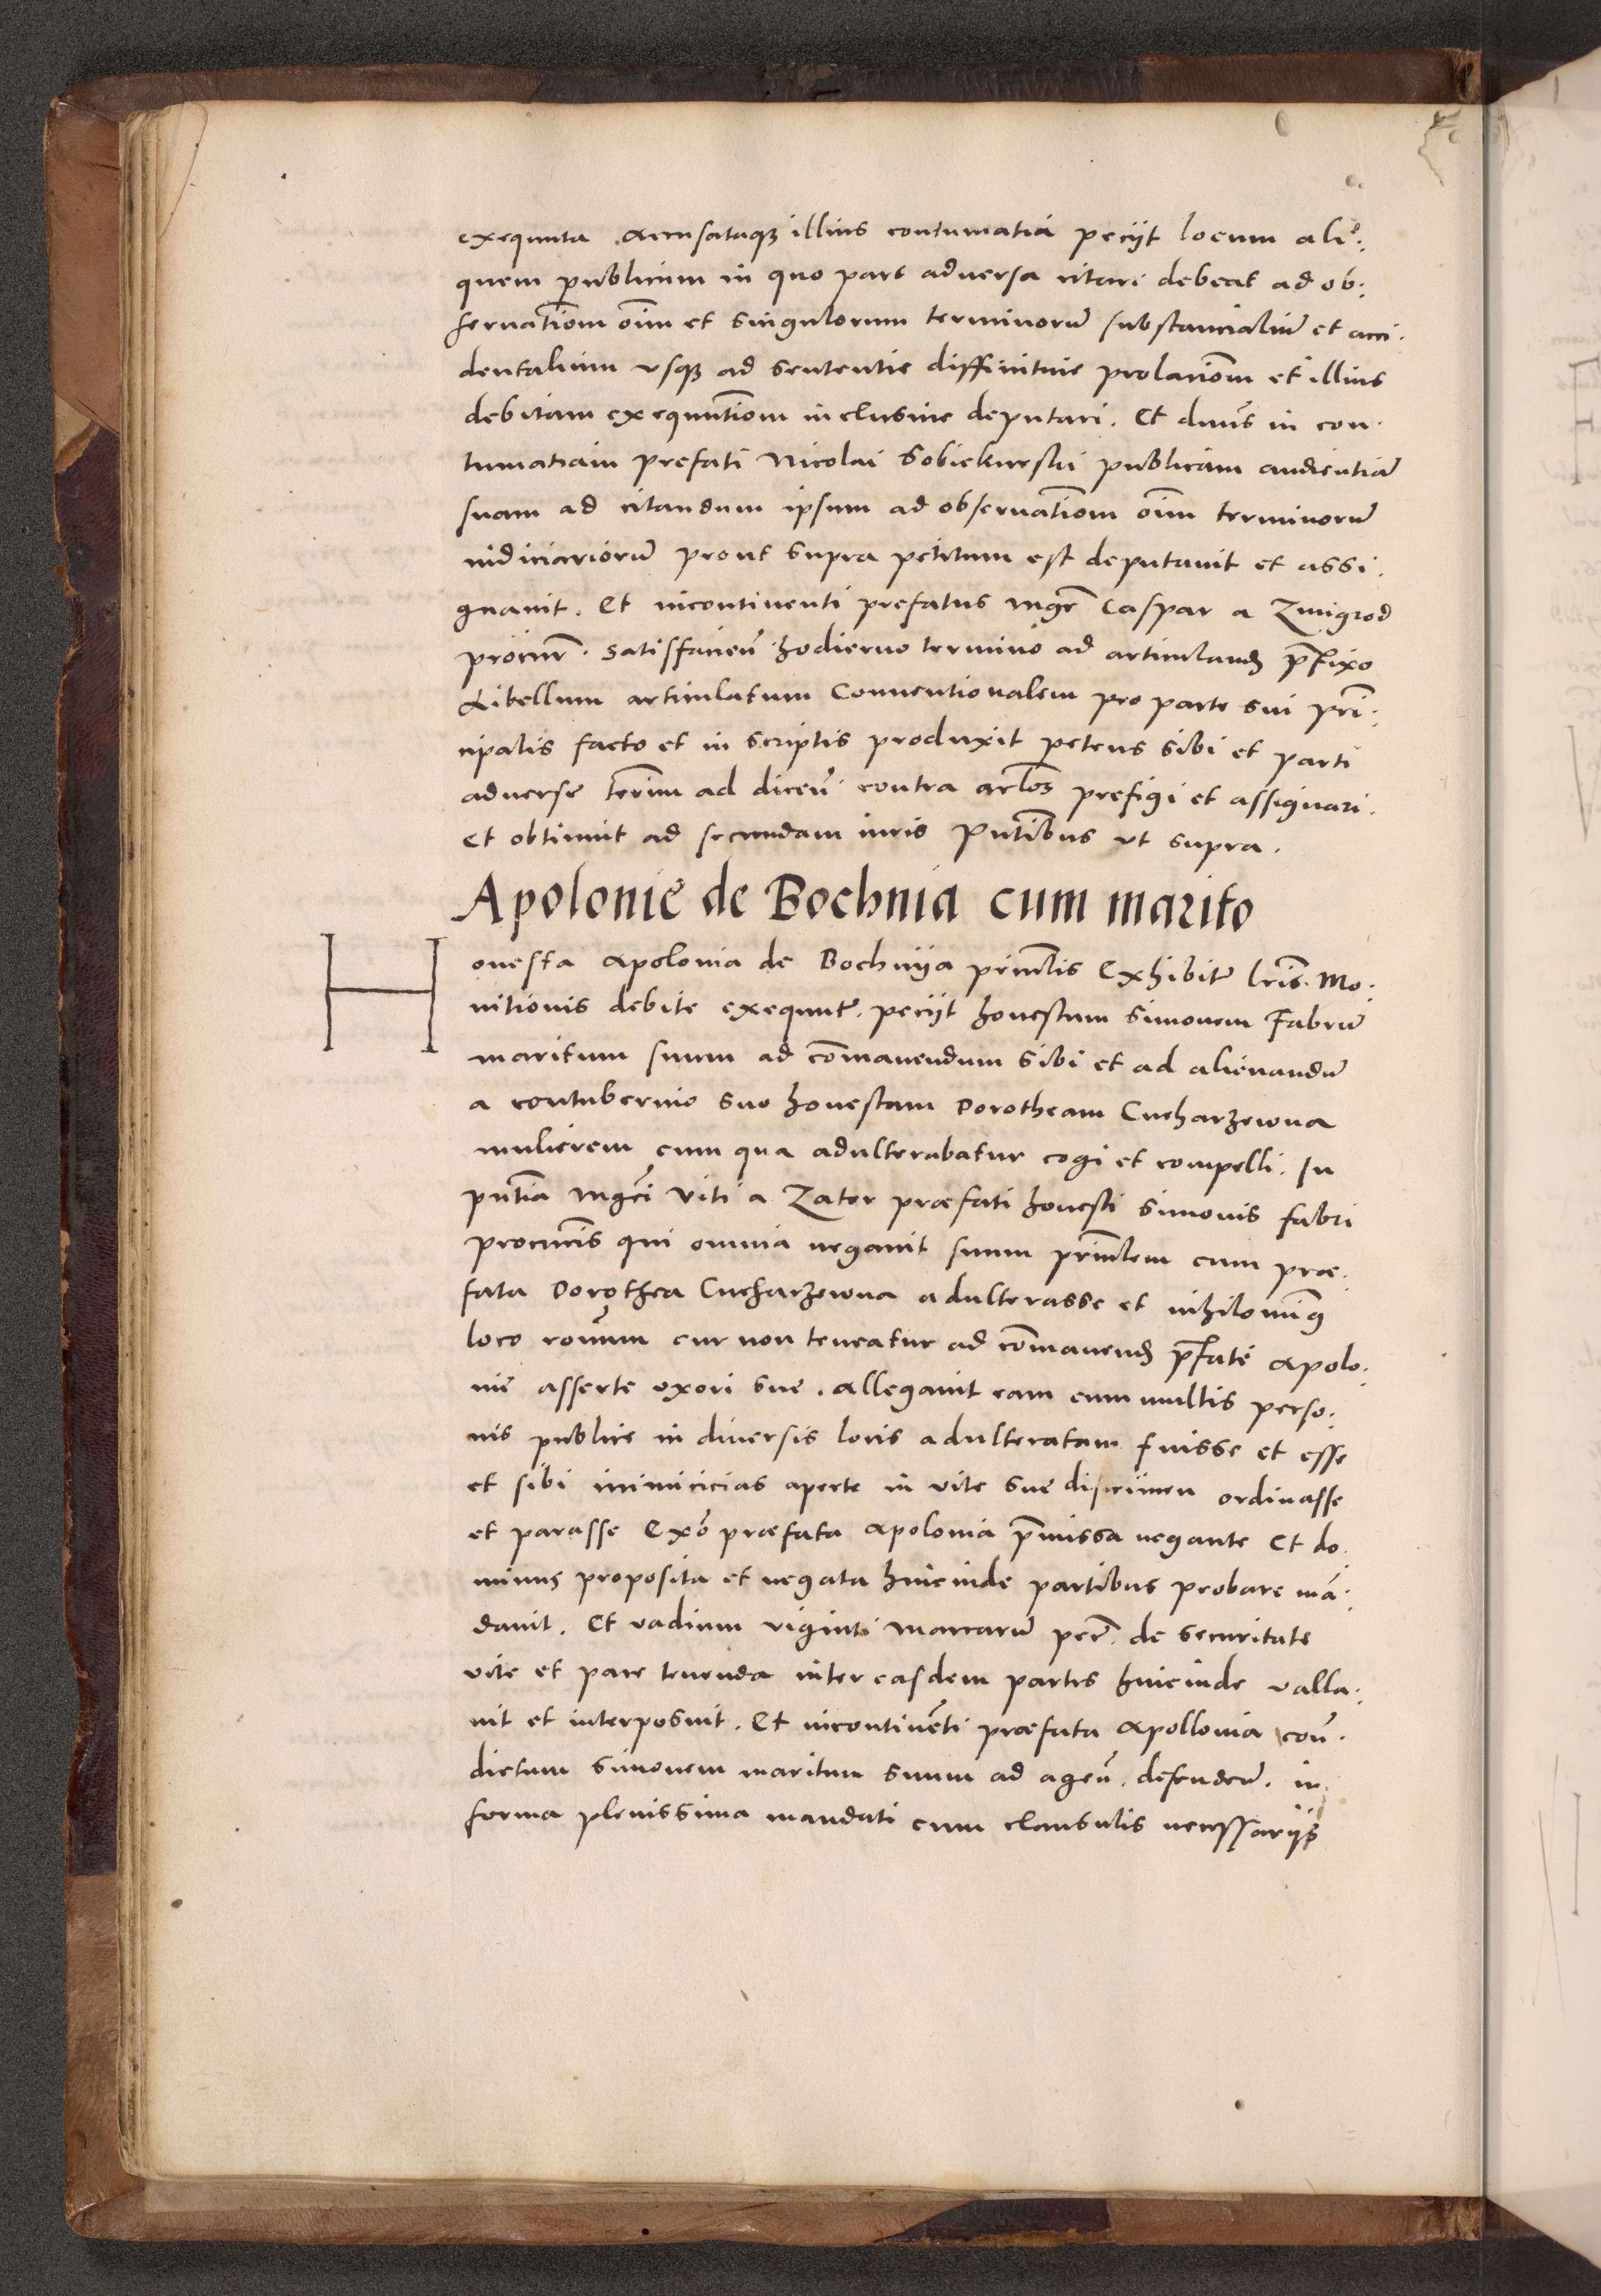 exequuta Accusataque illius contumatia peciit locum ali:
quem publicum in quo pars adversa citari debeat ad ob:
servatiom oim et singulorum terminorū substancialiū et acci:
dentalium usque ad sententie diffinitive prolatiom et illius
debitam exequutiom inclusive deputari. Et dnus in con:
tumatiam prefati Nicolai Sobiekurski publicam audientiā
suam ad citandum ipsum ad observatiom oim terminorū
iudiciariorū prout supra petitum est deputavit et assi:
gnavit. Et incontinenti prefatus mgr Caspar a Zmigrod
procur. satisfacien hodierno termino ad articuland prfixo
Libellum articulatum Conventionalem pro parte sui prin:
cipalis facto et in scriptis produxit petens sibi et parti
adverse termin ad dicen contra arlos prefigi et assignari.
Et obtinuit ad secundam iuris Pntibus ut supra.
Apolonie de Bochnia cum marito
Honesta Apolonia de Bochniia princlis Exhibitis lris Mo:
nitionis debite exequut. peciit honestum Simonem Fabrū
maritum suum ad comanendum sibi et ad alienandū
a contubernio suo honestam Dorotheam Cucharzewna
mulierem cum qua adulterabatur cogi et compelli. In
pntia mgri Viti a Zator præfati honesti Simonis fabri
procuris qui omnia negavit suum princlem cum præ:
fata Dorothea Cucharzewna adulterasse et nihilominq
loco ronum cur non teneatur ad comanend prfate Apolo:
nie asserte uxori sue. Allegavit eam cum multis perso:
nis publice in diversis locis adulteratam fuisse et esse
et sibi inimicicias aperte in vite sue discrimen ordinasse
et parasse Exo præfata Apolonia prmissa negante Et do:
minus proposita et negata hincinde partibus probare mā:
davit. Et vadium viginti marcarū pecu. de securitate
vite et pace tenenda inter easdem partes hincinde valla:
vit et interposuit. Et incontinēti præfata Apollonia con:
dictum Simonem maritum suum ad agen. defenden. in
forma plenissima mandati cum clausulis necessariis